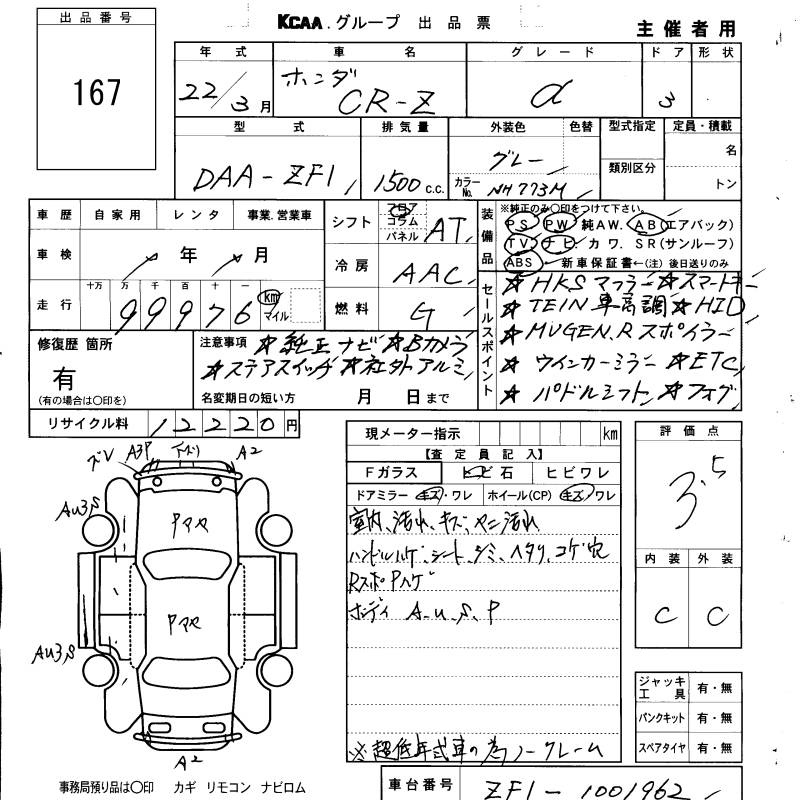 出品番号
167
KCAA.グループ 出品票
主催者用
年式 車名 グレード ドア 形状
22/3月 ホンダ CR-Z α 3
型式 排気量 外装色 色替 型式指定 定員・積載
DAA-ZF1 1500 c.c. グレー カラーNo. NH773M 類別区分 名 トン
車歴 自家用 レンタ 事業.営業車
車検 年 月
走行 十万 万 千 百 十 一
99976 km マイル
シフト フロア コラム パネル AT
冷房 AAC
燃料 G
装備品
※純正のみ〇印をつけて下さい。
PS PW 純AW. AB(エアバック)
TV ナビ.カワ.SR(サンルーフ)
ABS 新車保証書←(注)後日送りのみ
セールスポイント
☆HKS マフラー ☆スマートキー
☆TEIN 車高調 ☆HID
☆MUGEN.Rスポイラー
☆ウインカーミラー ☆ETC
☆パドルシフト ☆フォグ
修復歴 箇所
有
(有の場合は〇印を)
注意事項 ☆純正ナビ ☆Bカメラ
☆ステアスイッチ ☆社外アルミ
名変期日の短い方 月 日まで
リサイクル料 12220円
現メーター指示 km
【査定員記入】
Fガラス ヒビ石 ヒビワレ
ドアミラー キズ・ワレ ホイール(CP) キズ ワレ
室内、汚れ、キズ、ヤニ汚れ
ハンドルハゲ、シート、シミ、ヘタリ、コゲ穴
Rスポ Pハゲ
ボディ A.U.S.P
※超低年式車の為ノークレーム
評価点
3.5
内装 外装
C C
ジャッキ工具 有・無
パンクキット 有・無
スペアタイヤ 有・無
ズレ A3P A2
AU3,S
Pマヤ
Pマヤ
AU3,S
A2
事務局預り品は〇印 カギ リモコン ナビロム
車台番号 ZF1-1001962